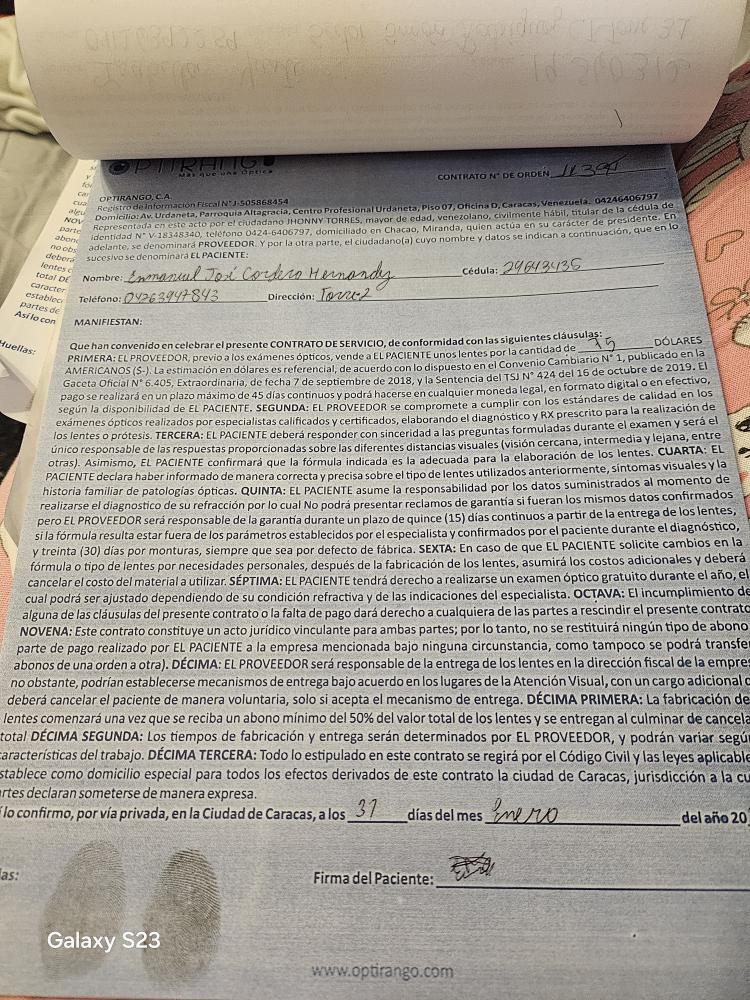 OPTIRANGO
Más que una Óptica
CONTRATO N° DE ORDEN
OPTIRANGO, C.A.
Registro de Información Fiscal N° J-505868454
Domicilio: Av. Urdaneta, Parroquia Altagracia, Centro Profesional Urdaneta, Piso 07, Oficina D, Caracas, Venezuela. 04246406797
Representada en este acto por el ciudadano JHONNY TORRES, mayor de edad, venezolano, civilmente hábil, titular de la cédula de
identidad N° V-18348340, teléfono 0424-6406797, domiciliado en Chacao, Miranda, quien actúa en su carácter de presidente. En
adelante, se denominará PROVEEDOR. Y por la otra parte, el ciudadano(a) cuyo nombre y datos se indican a continuación, que en lo
sucesivo se denominará EL PACIENTE:
Nombre: Enmanuel José Cordero Hernandy Cédula: 29643435
Teléfono: 04263947843 Dirección: Torre 2
MANIFIESTAN:
Que han convenido en celebrar el presente CONTRATO DE SERVICIO, de conformidad con las siguientes cláusulas:
PRIMERA: EL PROVEEDOR, previo a los exámenes ópticos, vende a EL PACIENTE unos lentes por la cantidad de DÓLARES
AMERICANOS ($-). La estimación en dólares es referencial, de acuerdo con lo dispuesto en el Convenio Cambiario N° 1, publicado en la
Gaceta Oficial N° 6.405, Extraordinaria, de fecha 7 de septiembre de 2018, y la Sentencia del TSJ N° 424 del 16 de octubre de 2019. El
pago se realizará en un plazo máximo de 45 días continuos y podrá hacerse en cualquier moneda legal, en formato digital o en efectivo,
según la disponibilidad de EL PACIENTE. SEGUNDA: EL PROVEEDOR se compromete a cumplir con los estándares de calidad en los
exámenes ópticos realizados por especialistas calificados y certificados, elaborando el diagnóstico y RX prescrito para la realización de
los lentes o prótesis. TERCERA: EL PACIENTE deberá responder con sinceridad a las preguntas formuladas durante el examen y será el
único responsable de las respuestas proporcionadas sobre las diferentes distancias visuales (visión cercana, intermedia y lejana, entre
otras). Asimismo, EL PACIENTE confirmará que la fórmula indicada es la adecuada para la elaboración de los lentes. CUARTA: EL
PACIENTE declara haber informado de manera correcta y precisa sobre el tipo de lentes utilizados anteriormente, síntomas visuales y la
historia familiar de patologías ópticas. QUINTA: EL PACIENTE asume la responsabilidad por los datos suministrados al momento de
realizarse el diagnostico de su refracción por lo cual No podrá presentar reclamos de garantía si fueran los mismos datos confirmados
pero EL PROVEEDOR será responsable de la garantía durante un plazo de quince (15) días continuos a partir de la entrega de los lentes,
si la fórmula resulta estar fuera de los parámetros establecidos por el especialista y confirmados por el paciente durante el diagnóstico,
y treinta (30) días por monturas, siempre que sea por defecto de fábrica. SEXTA: En caso de que EL PACIENTE solicite cambios en la
fórmula o tipo de lentes por necesidades personales, después de la fabricación de los lentes, asumirá los costos adicionales y deberá
cancelar el costo del material a utilizar. SÉPTIMA: EL PACIENTE tendrá derecho a realizarse un examen óptico gratuito durante el año, el
cual podrá ser ajustado dependiendo de su condición refractiva y de las indicaciones del especialista. OCTAVA: El incumplimiento de
alguna de las cláusulas del presente contrato o la falta de pago dará derecho a cualquiera de las partes a rescindir el presente contrato
NOVENA: Este contrato constituye un acto jurídico vinculante para ambas partes; por lo tanto, no se restituirá ningún tipo de abono
parte de pago realizado por EL PACIENTE a la empresa mencionada bajo ninguna circunstancia, como tampoco se podrá transfe
abonos de una orden a otra). DÉCIMA: EL PROVEEDOR será responsable de la entrega de los lentes en la dirección fiscal de la empre
no obstante, podrían establecerse mecanismos de entrega bajo acuerdo en los lugares de la Atención Visual, con un cargo adicional
deberá cancelar el paciente de manera voluntaria, solo si acepta el mecanismo de entrega. DÉCIMA PRIMERA: La fabricación de
lentes comenzará una vez que se reciba un abono mínimo del 50% del valor total de los lentes y se entregan al culminar de cancela
total DÉCIMA SEGUNDA: Los tiempos de fabricación y entrega serán determinados por EL PROVEEDOR, y podrán variar segú
características del trabajo. DÉCIMA TERCERA: Todo lo estipulado en este contrato se regirá por el Código Civil y las leyes aplicable
stablece como domicilio especial para todos los efectos derivados de este contrato la ciudad de Caracas, jurisdicción a la cu
artes declaran someterse de manera expresa.
í lo confirmo, por vía privada, en la Ciudad de Caracas, a los 31 días del mes Enero del año 20
las:
Firma del Paciente:
www.optirango.com
Huellas:
Galaxy S23